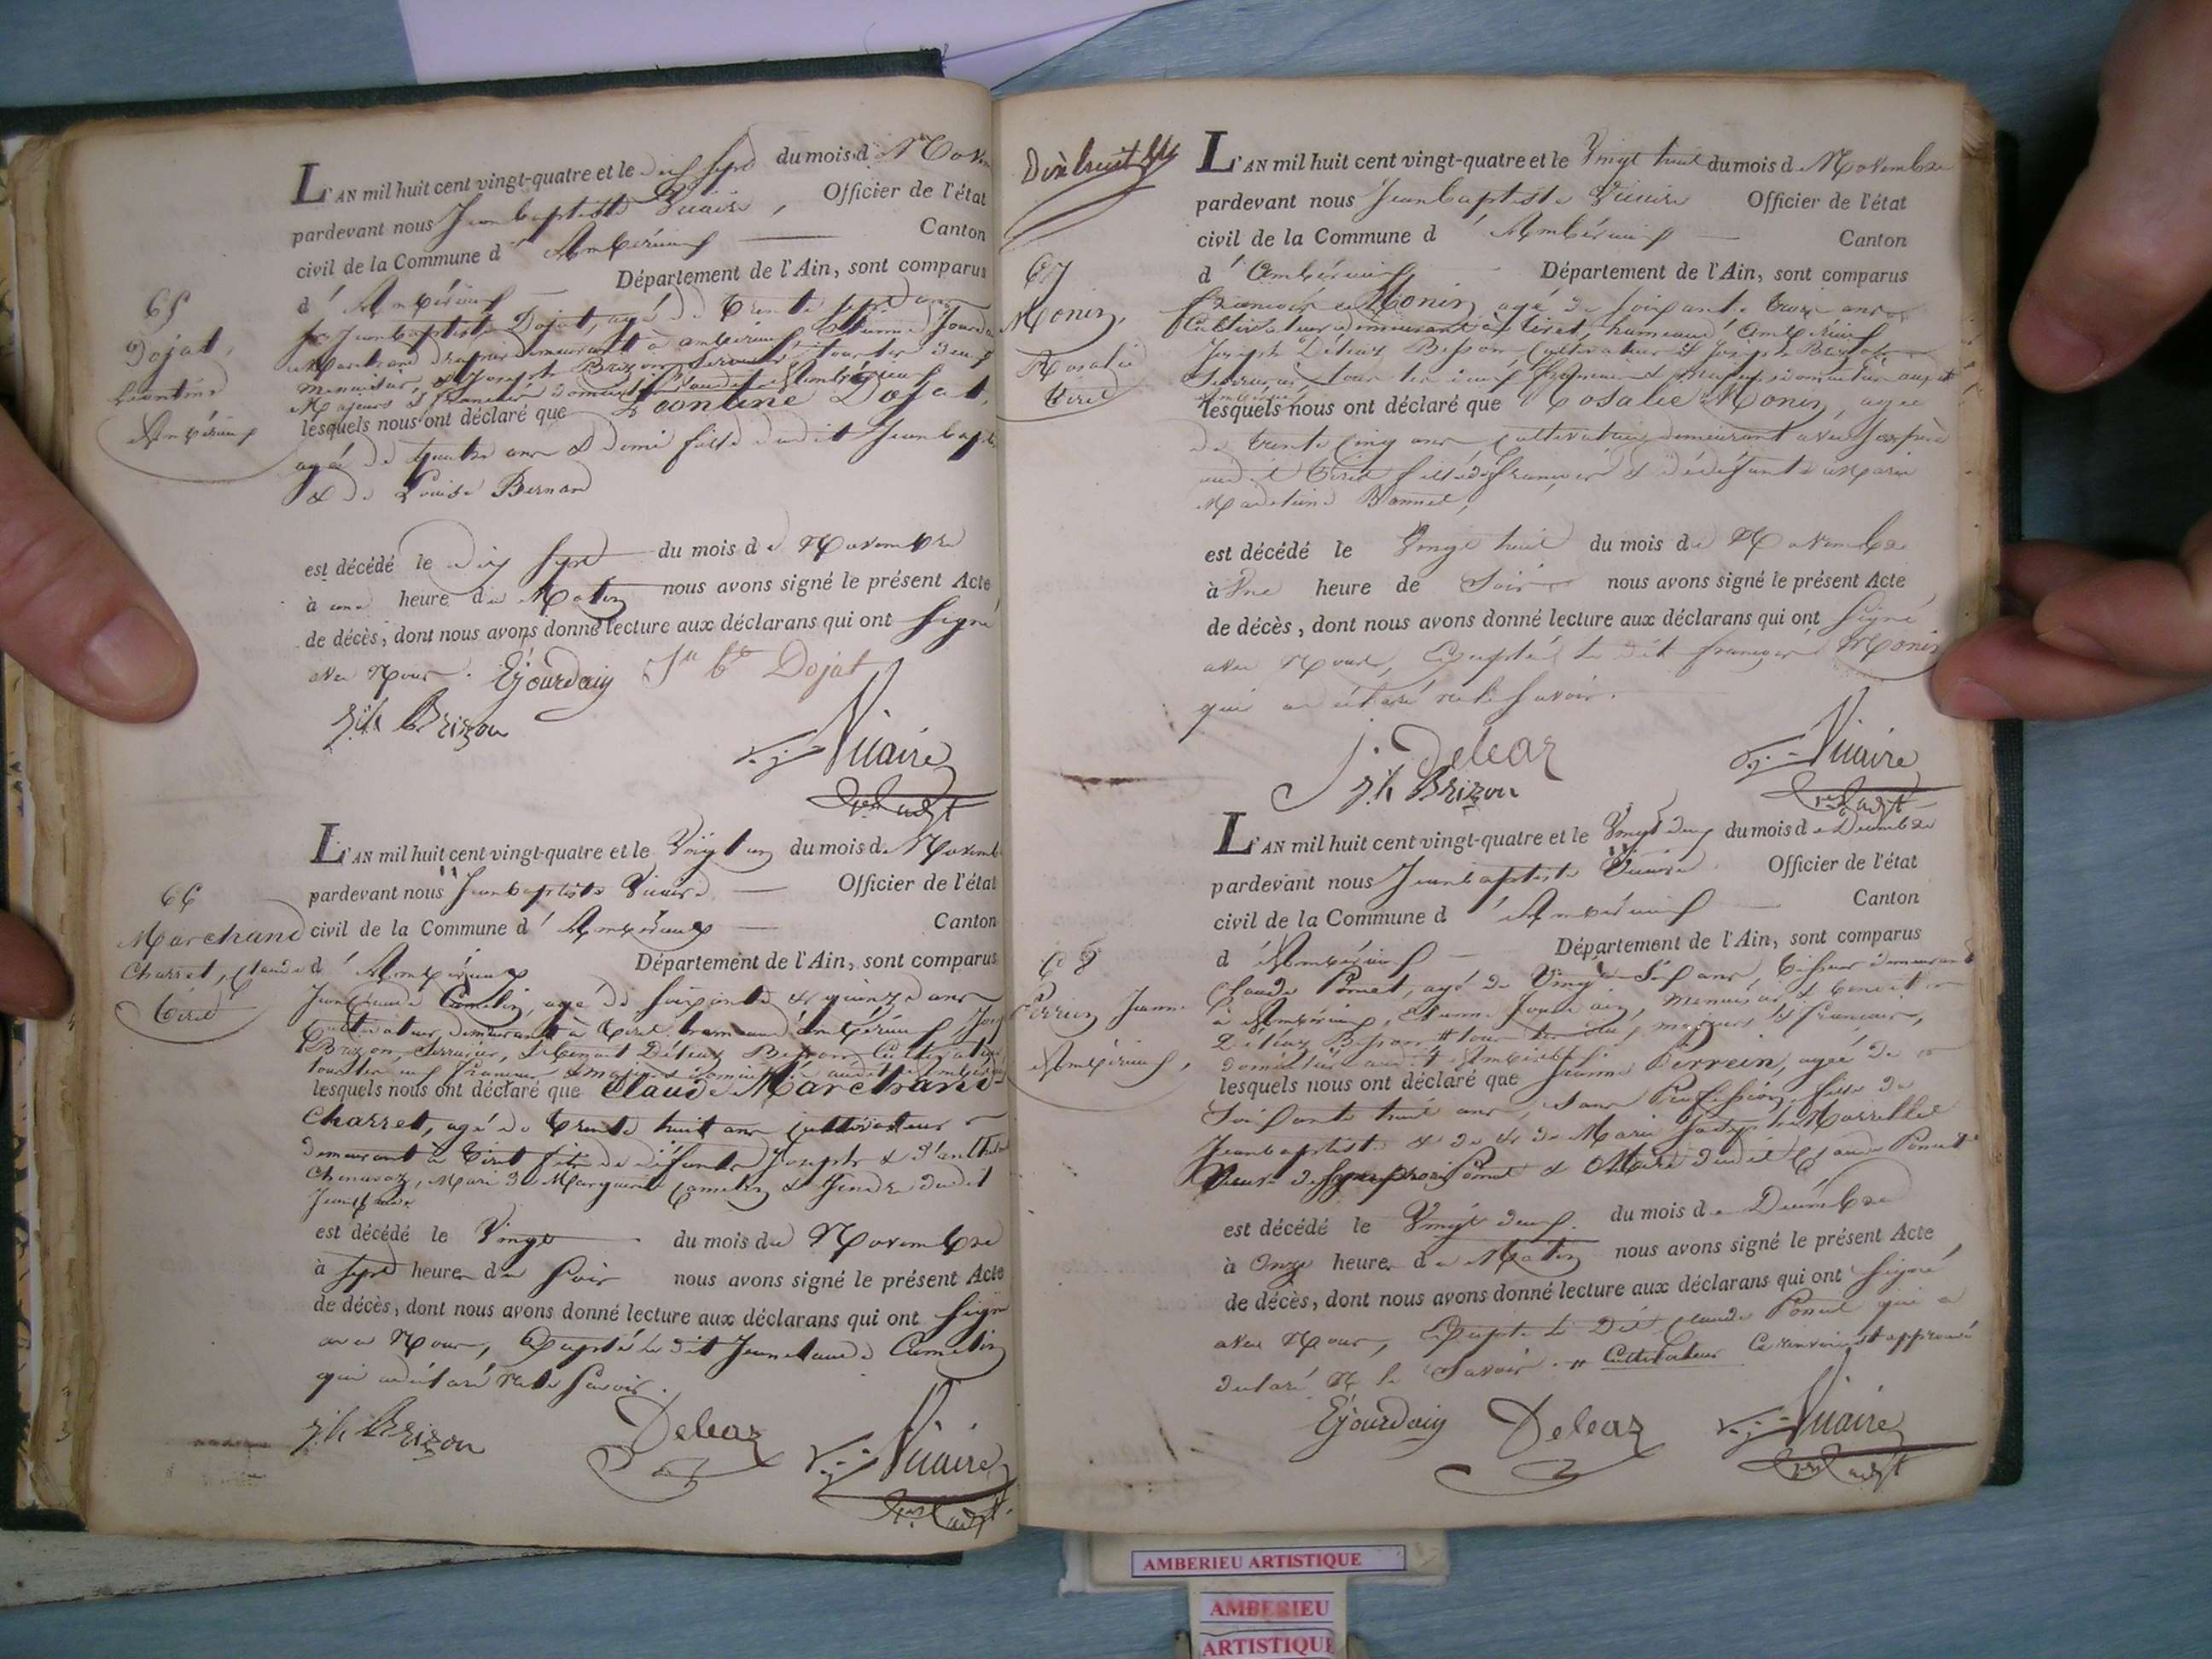 65
Dojat,
Léontine
Ambérieux
L'AN mil huit cent vingt-quatre et le dix sept du mois d e Novem
pardevant nous Jeanbaptiste Vicaire, Officier de l'état
civil de la Commune d' Ambérieux Canton
d' Ambérieux Département de l'Ain, sont comparus
Jeanbaptiste Dojat, agé de trente sept ans
Marchand drapier demeurant à ambérieux, Etienne Jourda
Menuisier, & Joseph Brizon Serrurier, tous les deux
Majeurs & francais domiciliés audit Ambérieux
lesquels nous ont déclaré que Léontine Dojat,
agée de quatre ans & demi fille dudit Jeanbapti
& de Louise Bernard
est décédé le dix sept du mois d e Novembre
à une heure du Matin nous avons signé le présent Acte
de décès, dont nous avons donné lecture aux déclarans qui ont signé
avec Nous. E. jourdain Jn bte Dojat
jh Brizon
Vicaire
66
Marchand
Charret, Claude
tiret
L'AN mil huit cent vingt-quatre et le Vingt un du mois de Novemb
pardevant nous Jeanbaptiste Vicaire Officier de l'état
civil de la Commune d' Ambérieux Canton
d' Ambérieux Département de l'Ain, sont comparus
Jeanclaude Camelin, agé de soixante & quinze ans
Cultivateur, demeurant à tiret hameau d'ambérieux, Jos
Brizon, Serrurier, & benoit Déléaz Besson Cultivateu
tous les deux francais & majeurs domiciliés audit ambérieux
lesquels nous ont déclaré que Claude Marchand
Charret, agé de trente huit ans cultivateur
demeurant à Tiret fils de défunts Joseph & d'anthe
Chenavaz, Mari de Marguerite Camelin & Gendre dudit
Jeanclaude
est décédé le Vingt du mois de Novembre
à sept heures du soir nous avons signé le présent Acte
de décès, dont nous avons donné lecture aux déclarans qui ont signé
avec Nous, Excepté le dit Jeanclaude Camelin
qui a déclaré ne le savoir.
jh Brizon Deleaz Vicaire
Dixhuit
67
Monin,
Rosalie
tiret
L'AN mil huit cent vingt-quatre et le Vingt huit du mois d e Novembre
pardevant nous Jeanbaptiste Vicaire Officier de l'état
civil de la Commune d' Ambérieux Canton
d' Ambérieux Département de l'Ain, sont comparus
francois Monin, agé de soixante treize ans
Cultivateur demeurant à tiret, hameau d'Ambérieux
Joseph Déléaz Besson, Cultivateur & Joseph Brizon
Serrurier tous les deux francais & majeurs domiciliés audit
ambérieux
lesquels nous ont déclaré que Rosalie Monin, agée
de trente cinq ans cultivatrice demeurant avec son père
audit tiret fille de francois & de défunte Marie
Madeleine Bonnet,
est décédé le Vingt huit du mois de Novembre
à Une heure de Soir nous avons signé le présent Acte
de décès, dont nous avons donné lecture aux déclarans qui ont signé
avec Nous, Excepté le dit francois Monin
qui a déclaré ne le savoir.
J. Deleaz
jh Brizon
Vicaire
68
Perrein Jeanne
Ambérieux,
L'AN mil huit cent vingt-quatre et le Vingt deux du mois d e Décembre
pardevant nous Jeanbaptiste Vicaire Officier de l'état
civil de la Commune d' Ambérieux Canton
d' Ambérieux Département de l'Ain, sont comparus
Claude Poncet, agé de Vingt Six ans, tisseur demeurant
à Ambérieux, Etienne Jourdain, menuisier & benoit
Déléaz Besson # tous les deux majeurs & francais,
domiciliés audit Ambérieux
lesquels nous ont déclaré que Jeanne Perrein, agée de
Soixante huit ans, sans Profession, fille de
Jeanbaptiste & de & de Marie Josephe Marrellet
Veuve de francois Poncet & Mère dudit Claude Poncet
est décédé le Vingt deux du mois d e Décembre
à Onze heures du Matin nous avons signé le présent Acte
de décès, dont nous avons donné lecture aux déclarans qui ont signé
avec Nous, Excepté le Dit Claude Poncet qui a
declaré N le Savoir. # Cultivateur Ce renvoi est approuvé
E. jourdain Deleaz Vicaire
AMBERIEU ARTISTIQUE
AMBERIEU
ARTISTIQUE